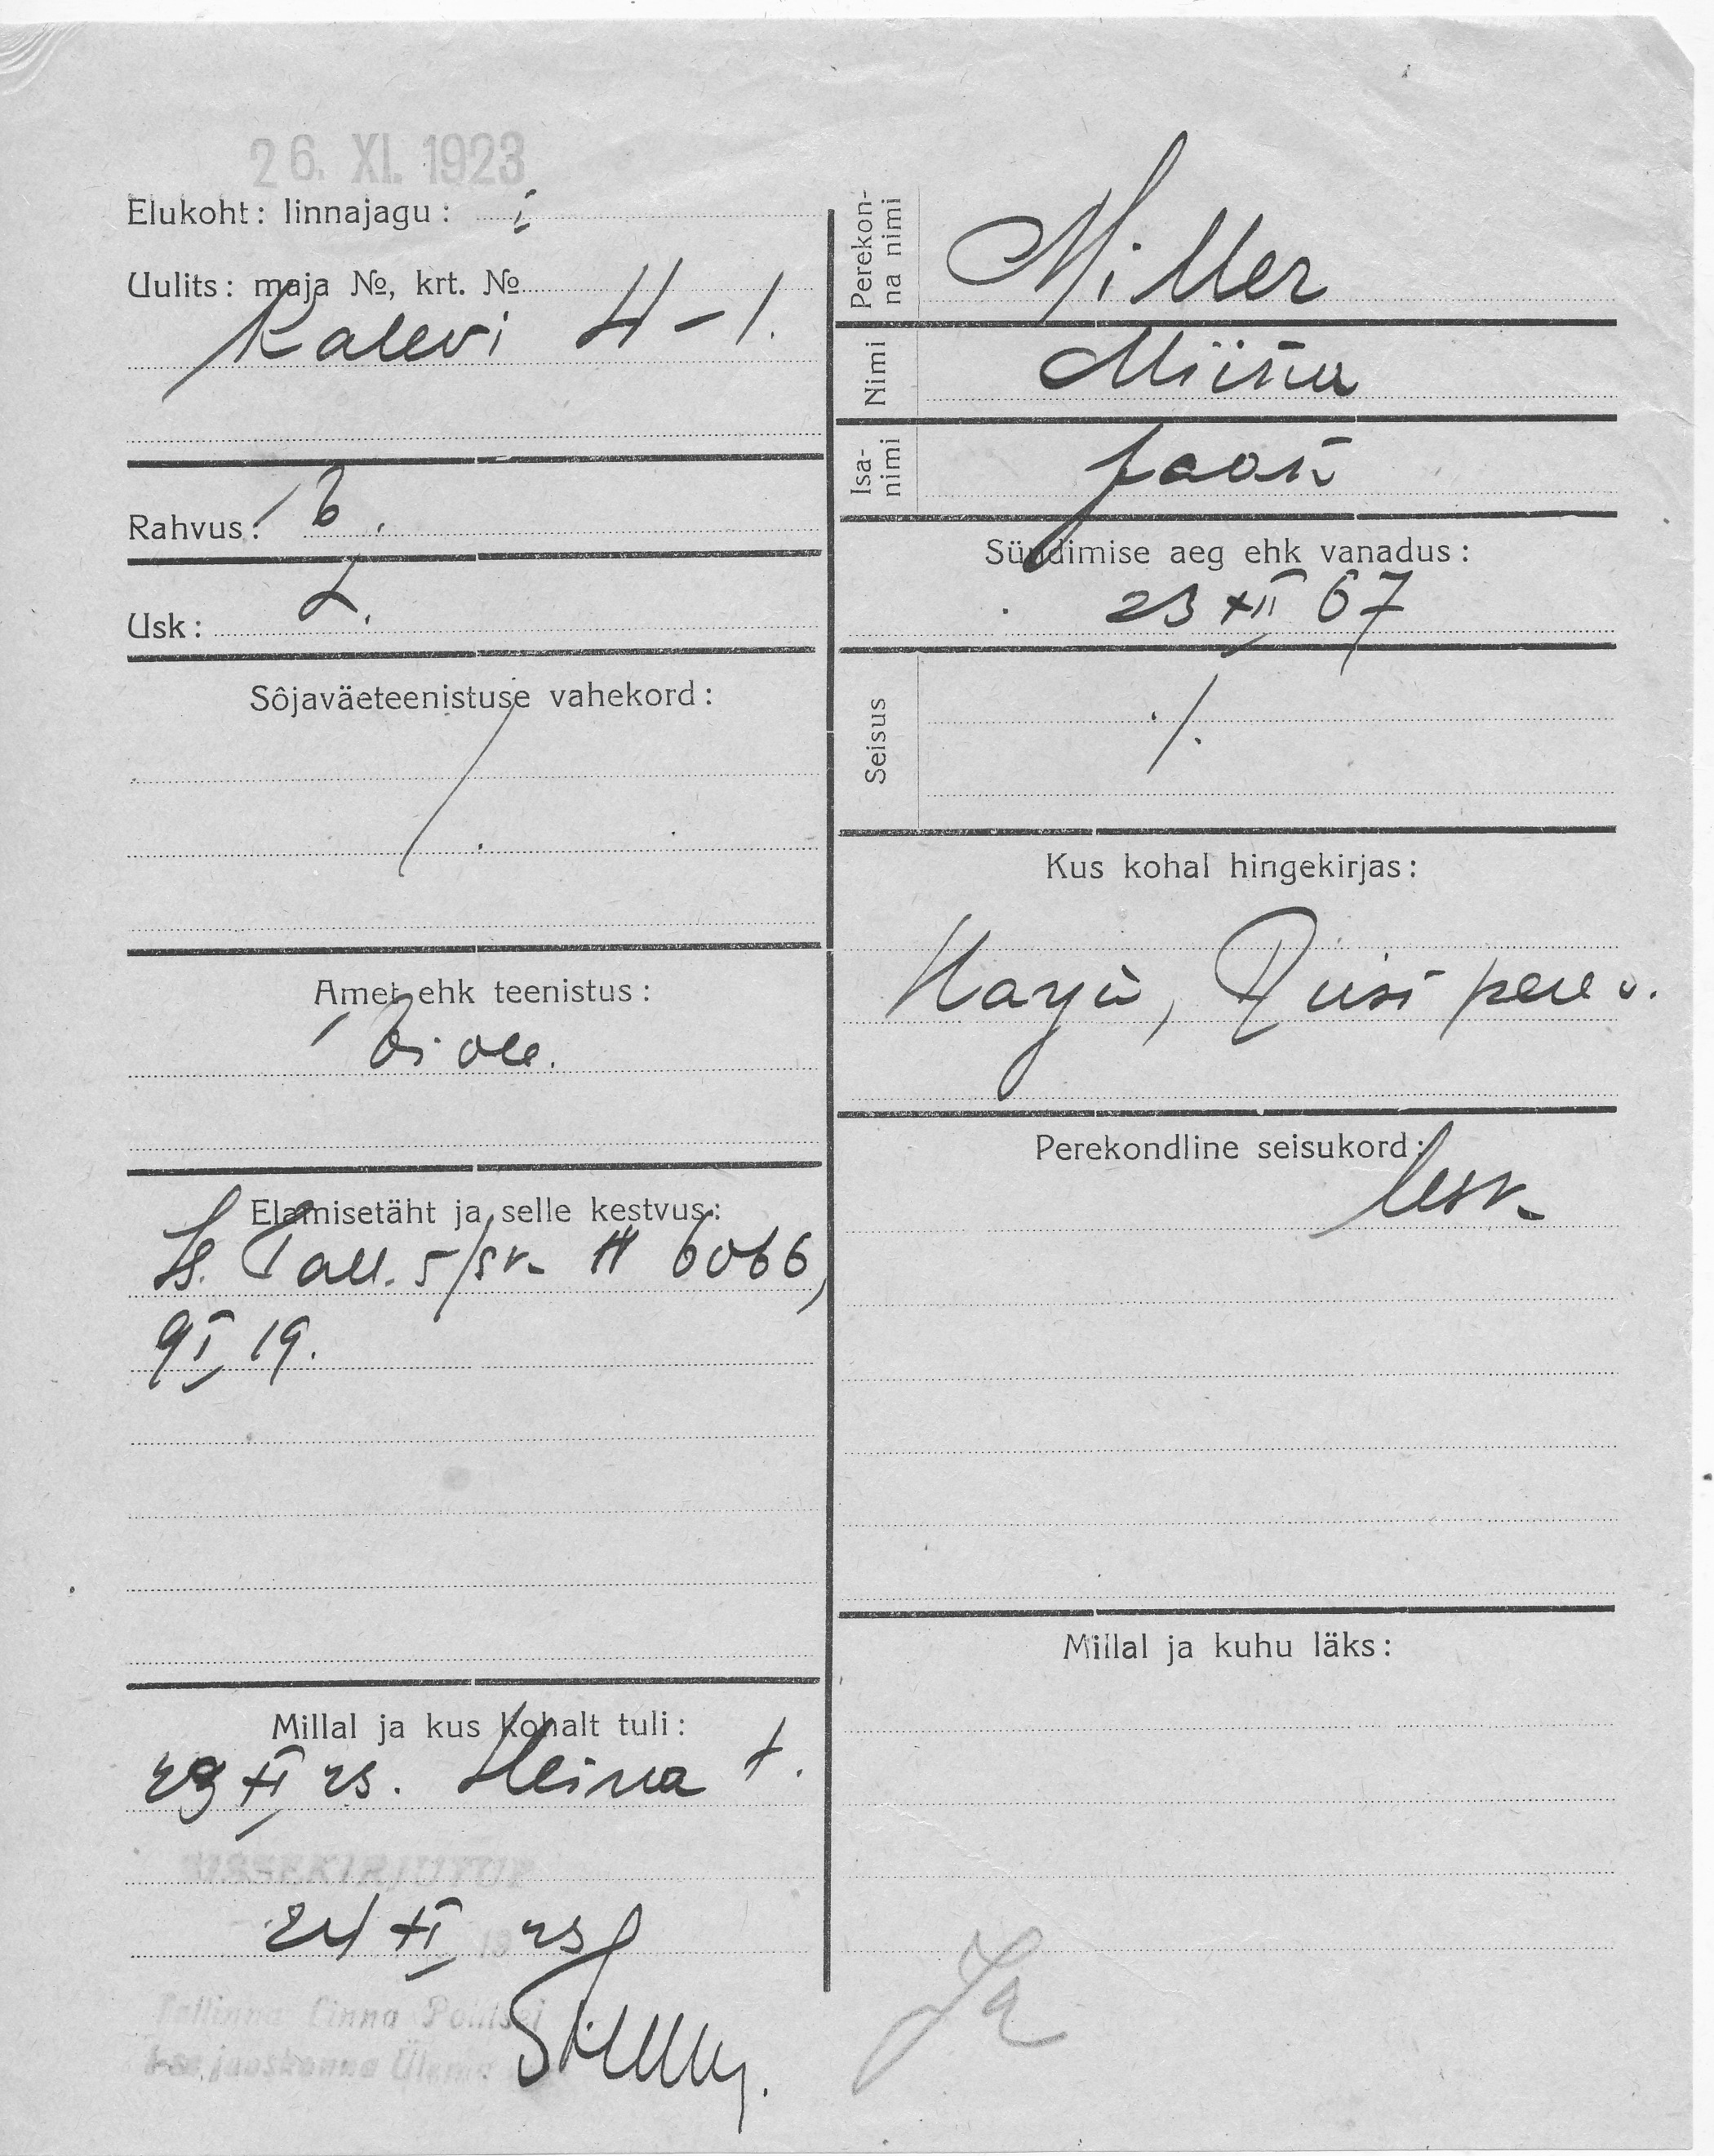 26. XI. 1923
Elukoht: linnajagu: i
Uulits: maja №, krt. №
Kalevi 4-1.
Rahvus: E.
Usk: L.
Sõjaväeteenistuse vahekord:
/.
Amet ehk teenistus:
Ei ole.
Elamisetäht ja selle kestvus:
Is. Tall. 5/sk. # 6066,
9 I 19.
Millal ja kus kohalt tuli:
23 XI 23. Heina t.
SISSEKIRJUTUD
24 XI 23
Tallinna Linna Politsei
jaoskonna Ülem
Perekonna nimi
Miller
Nimi
Miina
Isanimi
Jaak
Sündimise aeg ehk vanadus:
23 XII 67
Seisus
./.
Kus kohal hingekirjas:
Harju, Riisipere v.
Perekondline seisukord:
lesk
Millal ja kuhu läks: